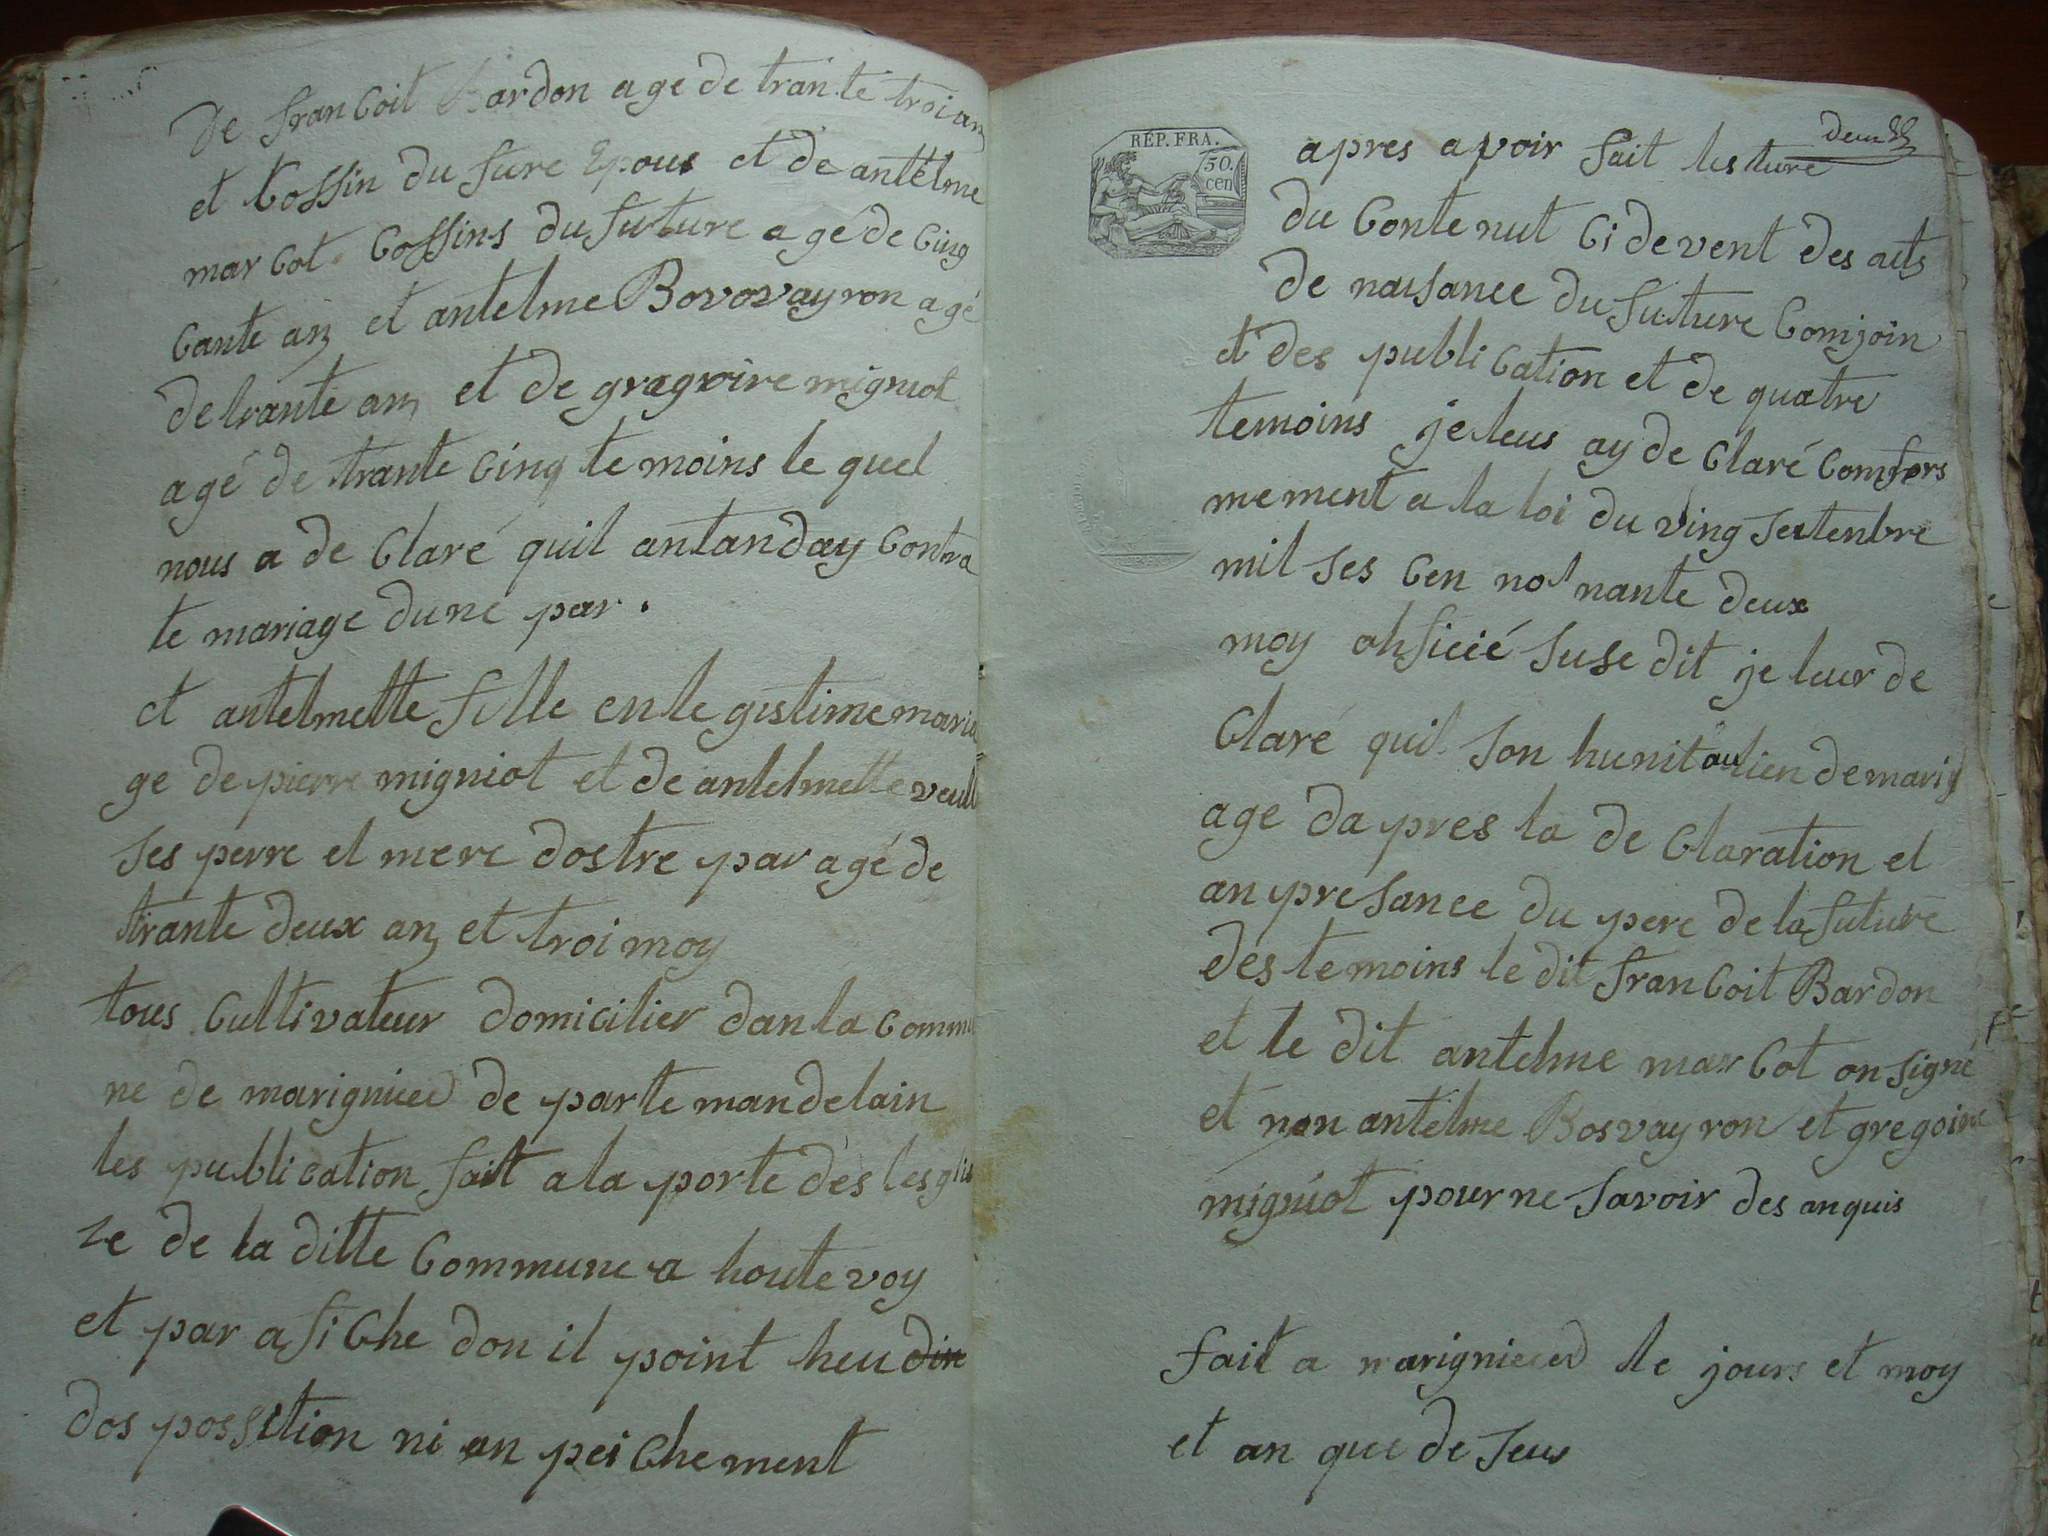 de franCoit Bardon age de trante troi an
et Cossin du fure Epous et de antelme
marCot Cossins du future age de Cinq
Cante an et antelme Bovovayron agé
de trante an et de gragoire migniot
agé de trante Cinq temoins le quel
nous a de Claré quil antanday Contra
te mariage dune par.
et antelmette fille en le gistime maria
ge de pierre migniot et de antelmette
ses perre et mere dostre par agé de
trante deux an et troi moy
tous Cultivateur domicilier dan la Commu
ne de marignieed de parte mandelain
les publication fait a la porte des lesgli
ze de la ditte Commune a houte voy
et par afiChe don il point heu din
dos possition ni an pei Chement
deux
RÉP. FRA.
50.
cen
apres avoir fait lesture
du Contenut Ci devent des acts
de naisance du future Comjoin
et des publiCation et de quatre
temoins je leus ay de Claré Comfors
mement a la loi du ving sectenbre
mil ses Cen no nante deux
moy ohficié suse dit je leur de
Claré quil son hunit au lien de mari
age da pres la de Claration et
an presance du pere de la future
des temoins le dit franCoit Bardon
et le dit antelme marCot on signé
et non antelme Bosvayron et gregoire
migniot pour ne savoir des anquis
fait a marignieed le jours et moy
et an que de seus